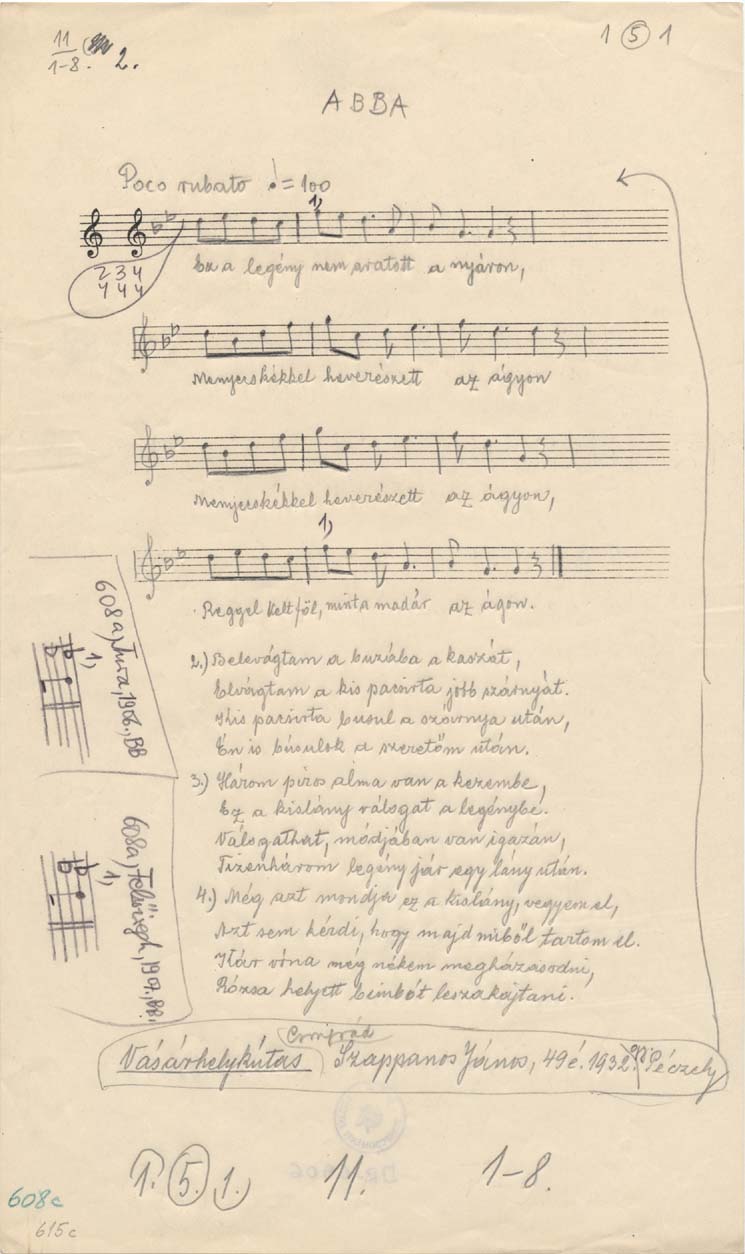 11
1-8. 2.
1 5 1
ABBA
Poco rubato ♩= 100
1)
2 3 4
4 4 4
Ez a legény nem aratott a nyáron,
Menyecskékkel heverészett az ágyon
Menyecskékkel heverészett az ágyon,
1)
Reggel kelt föl, mint a madár az ágon.
2.) Belevágtam a buziába a kaszát,
Elvágtam a kis pacsirta jobb szárnyát.
Kis pacsirta busul a szárnya után,
Én is búsulok a szeretőm után.
3.) Három piros alma van a kezembe,
Ez a kislány válogat a legénybe.
Válogathat, módjában van igazán,
Tizenhárom legény jár egy lány után.
4.) Még azt mondja ez a kislány, vegyem el,
Azt sem kérdi, hogy majd miből tartom el.
Kár vóna még nékem megházasodni,
Rózsa helyett bimbót leszakajtani.
608a, Tura, 1906, BB
1)
608a, 1907, BB.
1)
Csongrád
Vásárhelykútas Szappanos János, 49 é. 1932. Péczely
1. 5. 1. 11. 1-8.
608c
615c